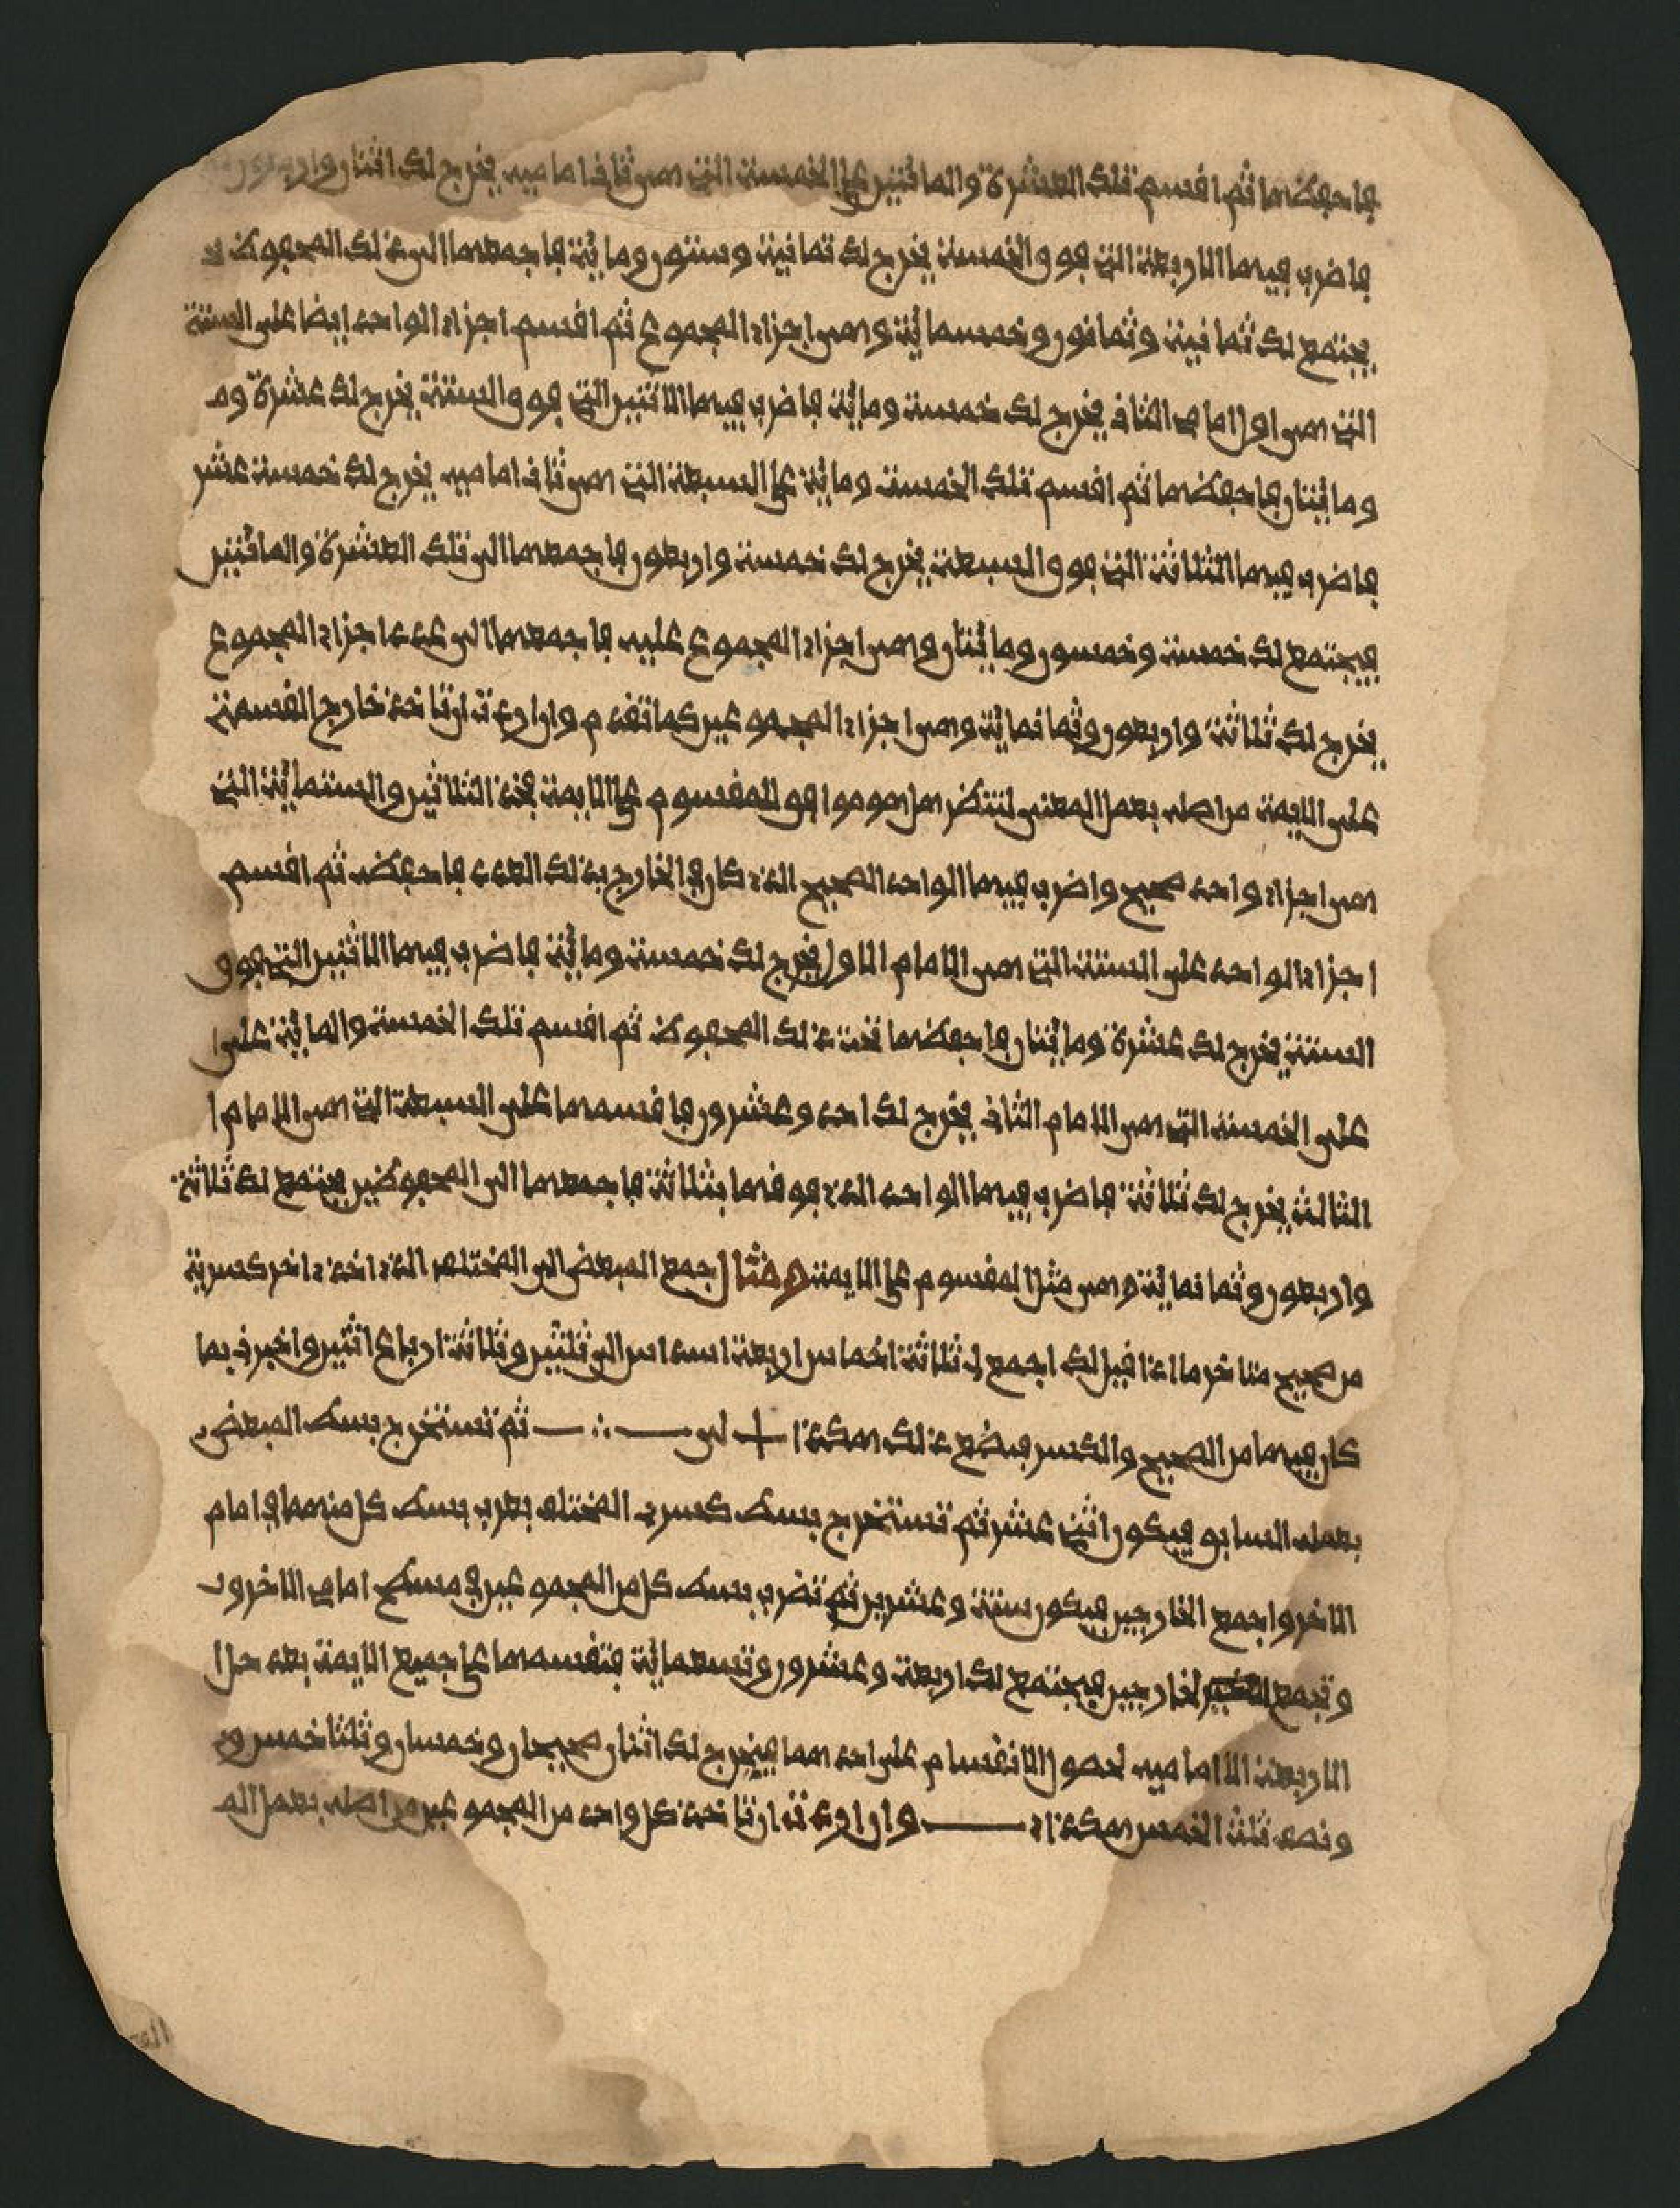 فاحفظهما ثم اقسم تلك العشرة والمائتين على الخمسة التي هي ثاني اماميه يخرج لك اثنان واربعون
فاضرب فيهما الاربعة التي فوق الخمسة يخرج لك ثمانية وستون ومائة فاجمعهما الى ذلك المحفوظ
يجتمع لك ثمانية وثمانون وخمسمائة وهي اجزاء المجموع ثم اقسم اجزاء الواحد ايضا على الستة
التي هي اول امامي الثاني يخرج لك خمسة ومائة فاضرب فيهما الاثنين التي فوق الستة يخرج لك عشرة
ومائتان فاحفظهما ثم اقسم تلك الخمسة ومائة على السبعة التي هي ثاني اماميه يخرج لك خمسة عشر
فاضرب فيهما الثلاثة التي فوق السبعة يخرج لك خمسة واربعون فاجمعهما الى تلك العشرة والمائتين
فيجتمع لك خمسة وخمسون ومائتان وهي اجزاء المجموع عليه فاجمعهما الى عدد اجزاء المجموع
يخرج لك ثلاثة واربعون وثمانمائة وهي اجزاء المجموعين كما تقدم وان اردت ان تاخذ خارج القسمة
على الايمة من اصله بعمل المعنى لتنظر هل هو موافق للمقسوم على الايمة فخذ الثلاثين والستمائة التي
هي اجزاء واحد صحيح واضرب فيهما الواحد الصحيح الذي كان في الخارج بذلك العدد فاحفظه ثم اقسم
اجزاء الواحد على الستة التي هي الامام الاول يخرج لك خمسة ومائة فاضرب فيهما الاثنين التي فوق
الستة يخرج لك عشرة ومائتان فاحفظهما تحت ذلك المحفوظ ثم اقسم تلك الخمسة والمائة على ا
على الخمسة التي هي الامام الثاني يخرج لك احد وعشرون فاقسمهما على السبعة التي هي الامام ا
الثالث يخرج لك ثلاثة فاضرب فيهما الواحد الذي فوقهما بثلاثة فاجمعهما الى المحفوظين يجتمع لك ثلاثة
واربعون وثمانمائة وهي مثل المقسوم على الايمة ومثال جمع المبعض الى المختلف الذي احد اخر كسريه
من صحيح متاخر ما اذا قيل لك اجمع لي ثلاثة اخماس اربعة اسداس الى ثلثين وثلاثة ارباع اثنين واخبرني بما
كان فيهما من الصحيح والكسر فيضع ذلك هكذا الى ثم تستخرج بسط المبعض
بعمله السابق فيكون اثني عشر ثم تستخرج بسط كسري المختلف بضرب بسط كل منهما في امام
الاخر واجمع الخارجين فيكون ستة وعشرين ثم تضرب بسط كل من المجموعين في مسطح امامي الاخر
وتجمع الخارجين فيجتمع لك اربعة وعشرون وتسعمائة فتقسمهما على جميع الايمة بعد حل
الاربعة الى اماميه لحصول الانقسام على احدهما فيخرج لك اثنان صحيحان وخمسان وثلثا خمس
ونصف ثلث الخمس هكذا وان اردت ان تاخذ كل واحد من المجموعين من اصله بعمل